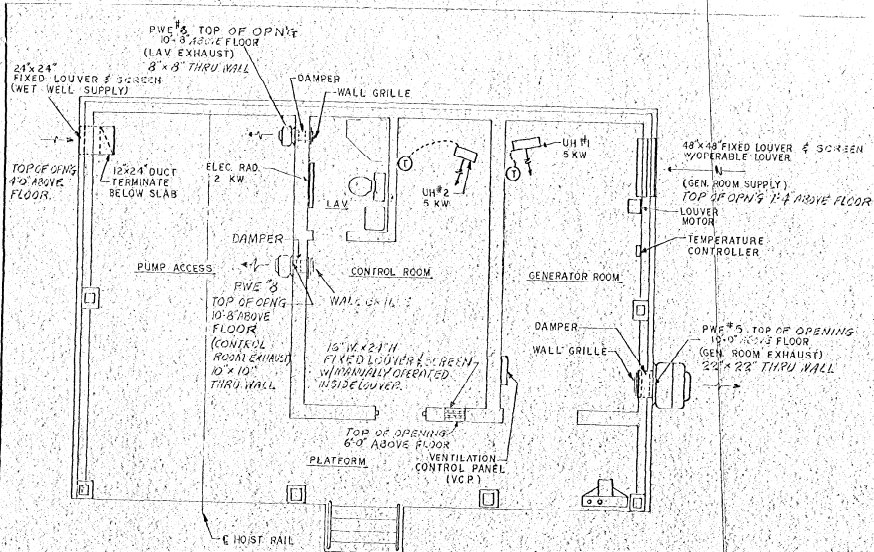 PWE #8 TOP OF OPN'G
10'-8" ABOVE FLOOR
(LAV EXHAUST)
8"x 8" THRU WALL
24"x 24"
FIXED LOUVER & SCREEN
(WET WELL SUPPLY)
DAMPER
WALL GRILLE
TOP OF OPN'G
4'-0" ABOVE
FLOOR.
12"x24" DUCT
TERMINATE
BELOW SLAB
ELEC. RAD.
2 KW.
LAV
T
UH #2
5 KW
T
UH #1
5 KW
48"x48" FIXED LOUVER & SCREEN
W/OPERABLE LOUVER
(GEN. ROOM SUPPLY)
TOP OF OPN'G 1'-4 ABOVE FLOOR
LOUVER
MOTOR
TEMPERATURE
CONTROLLER
DAMPER
PUMP ACCESS
CONTROL ROOM
GENERATOR ROOM
PWE #8
TOP OF OPNG
10'-8" ABOVE
FLOOR
(CONTROL
ROOM EXHAUST)
10"x 10"
THRU WALL
WALL GRILLE
16" W. x 24" H
FIXED LOUVER & SCREEN
W/MANUALLY OPERATED
INSIDE LOUVER.
DAMPER
WALL GRILLE
TOP OF OPENING
ABOVE FLOOR
(GEN. ROOM EXHAUST)
22"x 22" THRU WALL
TOP OF OPENING
6'-0" ABOVE FLOOR
PLATFORM
VENTILATION
CONTROL PANEL
(V.C.P.)
℄ HOIST RAIL